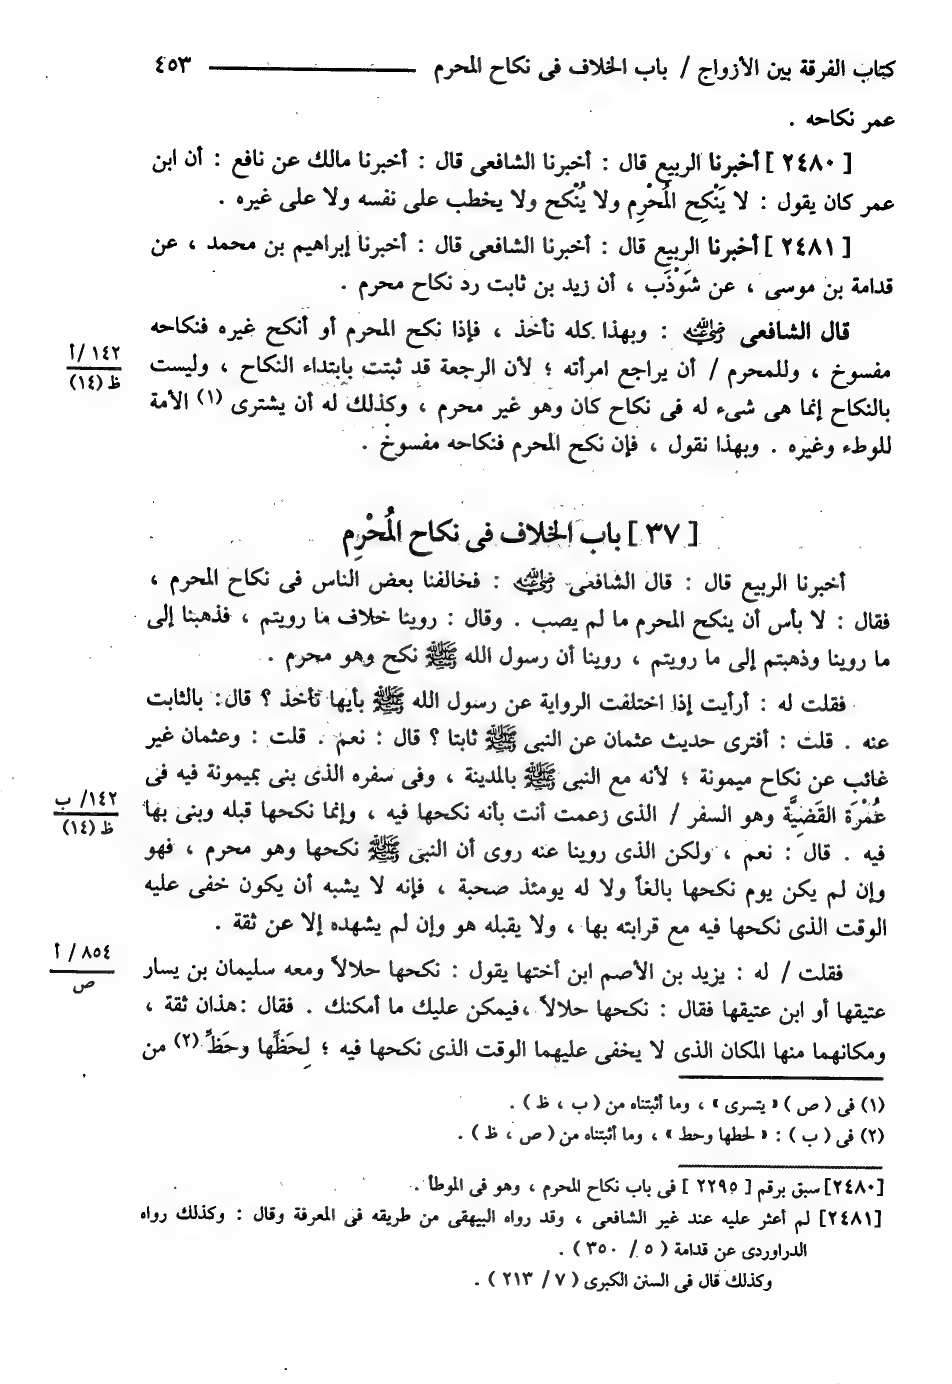 كتاب الفرقة بين الأزواج / باب الخلاف فى نكاح المحرم ــــــــــ ٤٥٣
عمر نكاحه .
[ ٢٤٨٠ ] أخبرنا الربيع قال : أخبرنا الشافعى قال : أخبرنا مالك عن نافع : أن ابن
عمر كان يقول : لا يَنْكِح المُحْرِم ولا يُنْكح ولا يخطب على نفسه ولا على غيره .
[ ٢٤٨١ ] أخبرنا الربيع قال : أخبرنا الشافعى قال : أخبرنا إبراهيم بن محمد ، عن
قدامة بن موسى ، عن شَوْذَب ، أن زيد بن ثابت رد نكاح محرم .
قال الشافعى رضي الله عنه : وبهذا كله نأخذ ، فإذا نكح المحرم أو أنكح غيره فنكاحه
مفسوخ ، وللمحرم / أن يراجع امرأته ؛ لأن الرجعة قد ثبتت بابتداء النكاح ، وليست
بالنكاح إنما هى شىء له فى نكاح كان وهو غير محرم ، وكذلك له أن يشترى (١) الأمة
للوطء وغيره . وبهذا نقول ، فإن نكح المحرم فنكاحه مفسوخ .
١٤٢ /أ
ظ (١٤)
[ ٣٧ ] باب الخلاف فى نكاح المُحْرِم
أخبرنا الربيع قال : قال الشافعى رضي الله عنه : فخالفنا بعض الناس فى نكاح المحرم ،
فقال : لا بأس أن ينكح المحرم ما لم يصب . وقال : روينا خلاف ما رويتم ، فذهبنا إلى
ما روينا وذهبتم إلى ما رويتم ، روينا أن رسول الله ﷺ نكح وهو محرم .
فقلت له : أرأيت إذا اختلفت الرواية عن رسول الله ﷺ بأيها تأخذ ؟ قال : بالثابت
عنه . قلت : أفترى حديث عثمان عن النبى ﷺ ثابتا ؟ قال : نعم . قلت : وعثمان غير
غائب عن نكاح ميمونة ؛ لأنه مع النبى ﷺ بالمدينة ، وفى سفره الذى بنى بميمونة فيه فى
عُمْرَة القَضِيَّة وهو السفر / الذى زعمت أنت بأنه نكحها فيه ، وإنما نكحها قبله وبنى بها
فيه . قال : نعم ، ولكن الذى روينا عنه روى أن النبى ﷺ نكحها وهو محرم ، فهو
وإن لم يكن يوم نكحها بالغاً ولا له يومئذ صحبة ، فإنه لا يشبه أن يكون خفى عليه
الوقت الذى نكحها فيه مع قرابته بها ، ولا يقبله هو وإن لم يشهده إلا عن ثقة .
١٤٢/ ب
ظ (١٤)
فقلت / له : يزيد بن الأصم ابن أختها يقول : نكحها حلالاً ومعه سليمان بن يسار
عتيقها أو ابن عتيقها فقال : نكحها حلالاً ، فيمكن عليك ما أمكنك . فقال : هذان ثقة ،
ومكانهما منها المكان الذى لا يخفى عليهما الوقت الذى نكحها فيه ؛ لِحَظِّها وحَظِّ (٢) من
٨٥٤ / أ
ص
(١) فى ( ص ) « يتسرى » ، وما أثبتناه من ( ب ، ظ ) .
(٢) فى ( ب ) : « لخطها وحط » ، وما أثبتناه من ( ص ، ظ ) .
[٢٤٨٠] سبق برقم [ ٢٢٩٥ ] فى باب نكاح المحرم ، وهو فى الموطأ .
[٢٤٨١] لم أعثر عليه عند غير الشافعى ، وقد رواه البيهقى من طريقه فى المعرفة وقال : وكذلك رواه
الدراوردى عن قدامة ( ٥ / ٣٥٠ ) .
وكذلك قال فى السنن الكبرى ( ٧ / ٢١٣ ) .